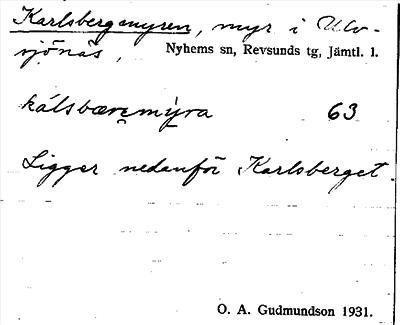 Karlsbergsmyren, myr i Ulv-
sjönäs, Nyhems sn, Revsunds tg, Jämtl. l.
kálsbæremỳra 63
Ligger nedanför Karlsberget.
O. A. Gudmundson 1931.